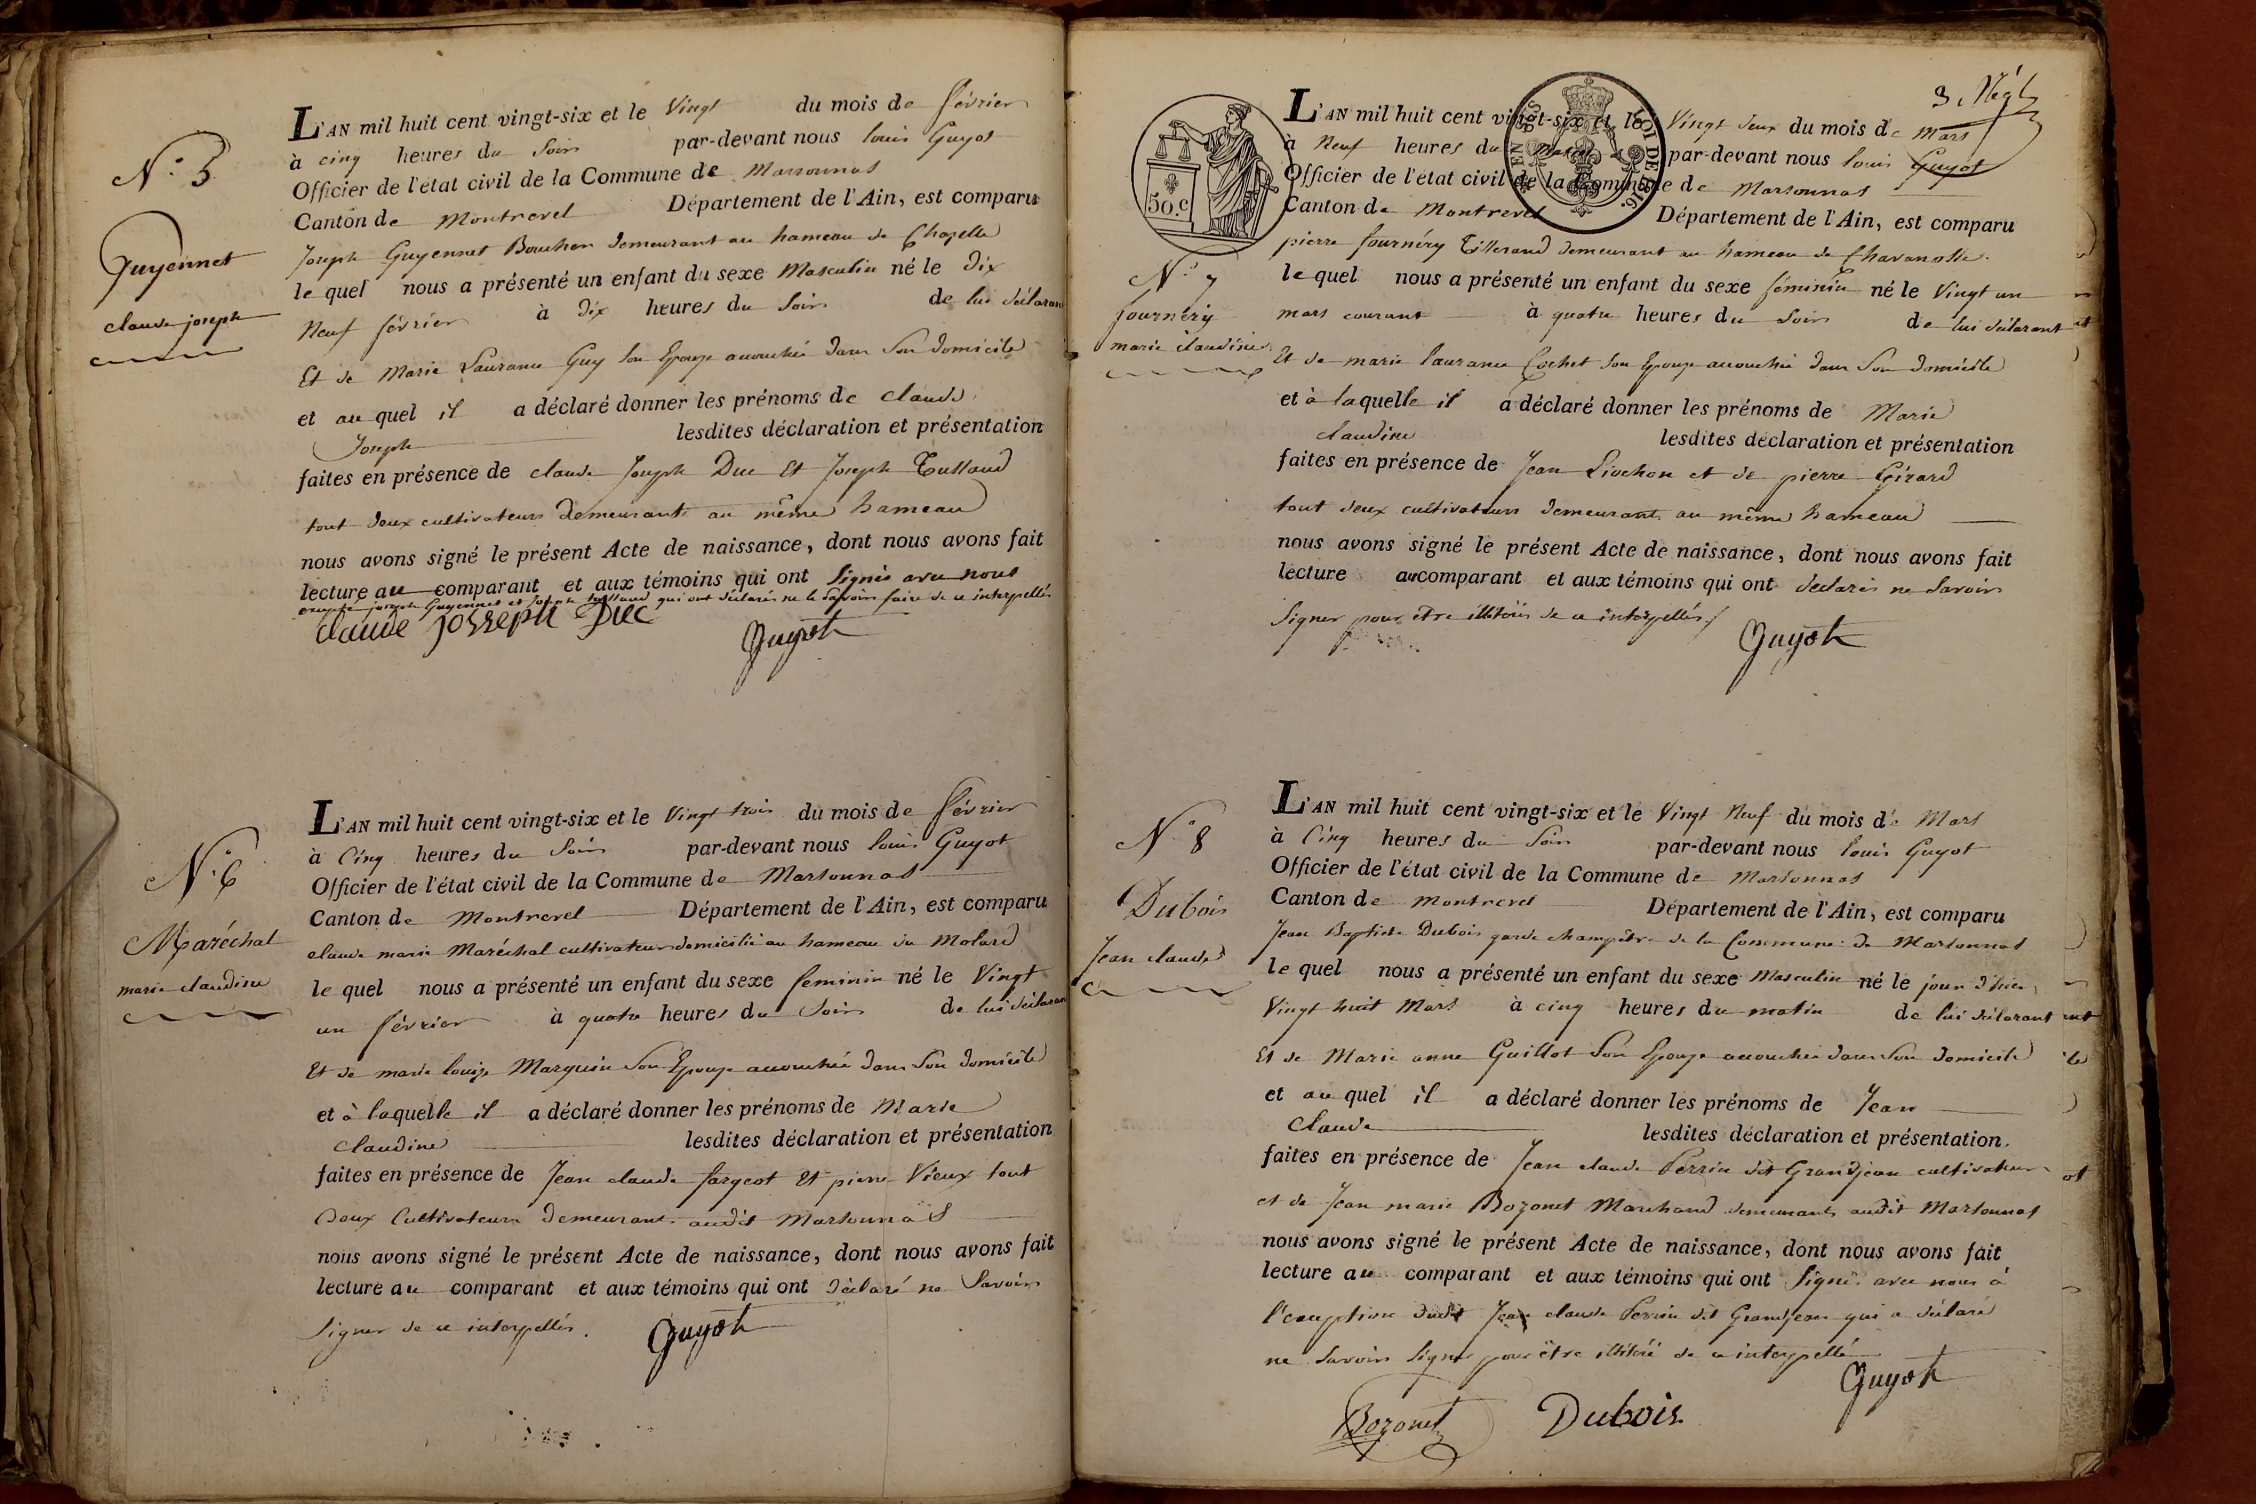 N.° 5
Guyennet
claude joseph
L'AN mil huit cent vingt-six et le Vingt du mois de février
à cinq heures du Soir par-devant nous louis Guyot
Officier de l'état civil de la Commune de Marsonnas
Canton de Montrevel Département de l'Ain, est comparu
Joseph Guyennet Boucher demeurant au hameau de Chapelle
le quel nous a présenté un enfant du sexe Masculin né le dix
Neuf février à dix heures du Soir de lui déclarant
Et de Marie Laurance Guy son Epouze accouchée dans Son domicile
et au quel il a déclaré donner les prénoms de claude
Joseph lesdites déclaration et présentation
faites en présence de claude Joseph Duc Et Joseph Tulland
tout deux cultivateurs demeurants au même hameau
nous avons signé le présent Acte de naissance, dont nous avons fait
lecture au comparant et aux témoins qui ont Signés avec nous
excepté joseph Guyennet et Joseph tulland qui ont déclarés ne le Savoir faire de ce interpellés
Claude josseph Duc
Guyot
N.° 6
Maréchal
marie claudine
L'AN mil huit cent vingt-six et le Vingt trois du mois de février
à Cinq heures du Soir par-devant nous louis Guyot
Officier de l'état civil de la Commune de Marsonnas
Canton de Montrevel Département de l'Ain, est comparu
claude marie Maréchal cultivateur domicilié au hameau du Molard
le quel nous a présenté un enfant du sexe feminin né le Vingt
un février à quatre heures du Soir de lui déclarant
Et de marie louise Marguin Son Epouze accouchée dans Son domicile
et à laquelle il a déclaré donner les prénoms de Marie
claudine lesdites déclaration et présentation
faites en présence de Jean claude fargeot Et pierre Vieux tout
deux Cultivateurs demeurant audit Marsonnas
nous avons signé le présent Acte de naissance, dont nous avons fait
lecture au comparant et aux témoins qui ont déclaré ne Savoir
Signer de ce interpellés.
Guyot
3. Nég
50.C
EN SUS
LOI DE 1816.
N.° 7
fournéry
marie claudine
L'AN mil huit cent vingt-six et le Vingt deux du mois de Mars
à Neuf heures du Matin par-devant nous louis Guyot
Officier de l'état civil de la Commune de Marsonnas
Canton de Montrevel Département de l'Ain, est comparu
pierre fournéry Tisserand demeurant au hameau de Chavanosse
le quel nous a présenté un enfant du sexe féminin né le Vingt un
mars courant à quatre heures du Soir de lui déclarant
Et de marie laurance Cochet Son Epouze accouchée dans Son domicile
et à laquelle il a déclaré donner les prénoms de Marie
claudine lesdites déclaration et présentation
faites en présence de Jean Livchon et de pierre Girard
tout deux cultivateurs demeurants au même hameau
nous avons signé le présent Acte de naissance, dont nous avons fait
lecture au comparant et aux témoins qui ont déclarés ne Savoir
Signer pour être illitérés de ce interpellés
Guyot
N.° 8
Dubois
Jean claude
L'AN mil huit cent vingt-six et le Vingt Neuf du mois de Mars
à Cinq heures du Soir par-devant nous louis Guyot
Officier de l'état civil de la Commune de Marsonnas
Canton de Montrevel Département de l'Ain, est comparu
Jean Baptiste Dubois garde champêtre de la Commune de Marsonnas
le quel nous a présenté un enfant du sexe Masculin né le jour d'hier
Vingt huit Mars à cinq heures du matin de lui déclarant
Et de Marie anne Guillot Son Epouze accouchée dans Son domicile
et au quel il a déclaré donner les prénoms de Jean
Claude lesdites déclaration et présentation
faites en présence de Jean claude Perrin dit Grandjean cultivateur
et de Jean marie Bozonet Marchand demeurants audit Marsonnas
nous avons signé le présent Acte de naissance, dont nous avons fait
lecture au comparant et aux témoins qui ont Signés avec nous à
l'exception dudit Jean claude Perrin dit Grandjean qui a déclaré
ne Savoir Signer pour être illitéré de ce interpellé
Guyot
Bozonet
Dubois